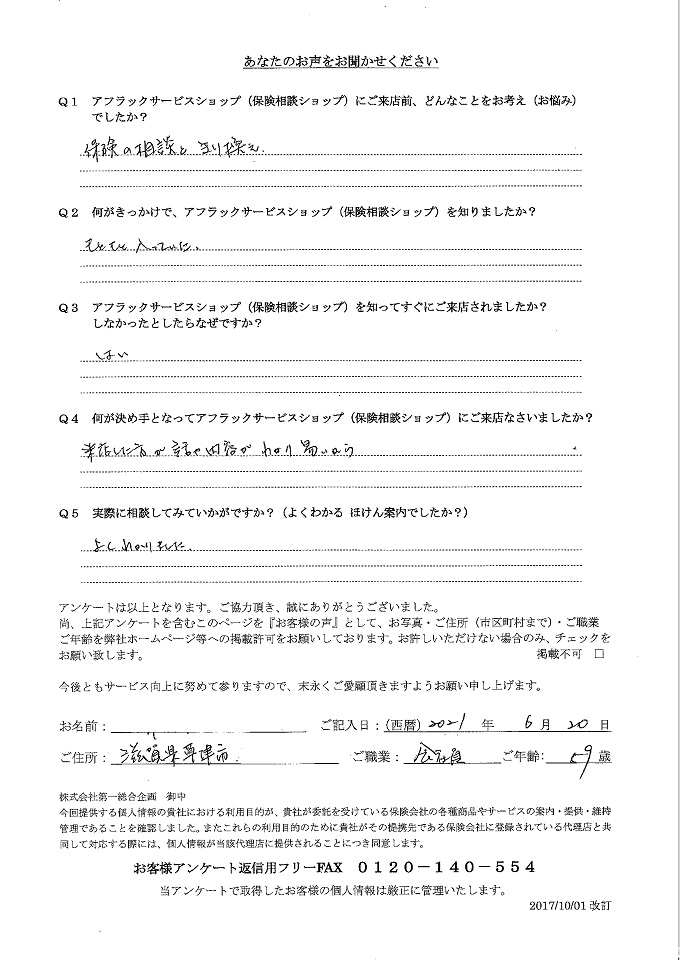 あなたのお声をお聞かせください
Q1 アフラックサービスショップ（保険相談ショップ）にご来店前、どんなことをお考え（お悩み）
でしたか？
保険の相談と切り換え.
Q2 何がきっかけで、アフラックサービスショップ（保険相談ショップ）を知りましたか？
もともと入っていた。
Q3 アフラックサービスショップ（保険相談ショップ）を知ってすぐにご来店されましたか？
しなかったとしたらなぜですか？
はい
Q4 何が決め手となってアフラックサービスショップ（保険相談ショップ）にご来店なさいましたか？
来店した方が話や内容がわかり易いから
Q5 実際に相談してみていかがですか？（よくわかる ほけん案内でしたか？）
よくわかりました.
アンケートは以上となります。ご協力頂き、誠にありがとうございました。
尚、上記アンケートを含むこのページを『お客様の声』として、お写真・ご住所（市区町村まで）・ご職業
ご年齢を弊社ホームページ等への掲載許可をお願いしております。お許しいただけない場合のみ、チェックを
お願い致します。 掲載不可 □
今後ともサービス向上に努めて参りますので、末永くご愛顧頂きますようお願い申し上げます。
お名前： ご記入日：（西暦）2021 年 6 月 20 日
ご住所： 滋賀県草津市 ご職業： 会社員 ご年齢： 59 歳
株式会社第一総合企画 御中
今回提供する個人情報の貴社における利用目的が、貴社が委託を受けている保険会社の各種商品やサービスの案内・提供・維持
管理であることを確認しました。またこれらの利用目的のために貴社がその提携先である保険会社に登録されている代理店と共
同して対応する際には、個人情報が当該代理店に提供されることにつき同意します。
お客様アンケート返信用フリーFAX 0120－140－554
当アンケートで取得したお客様の個人情報は厳正に管理いたします。
2017/10/01 改訂